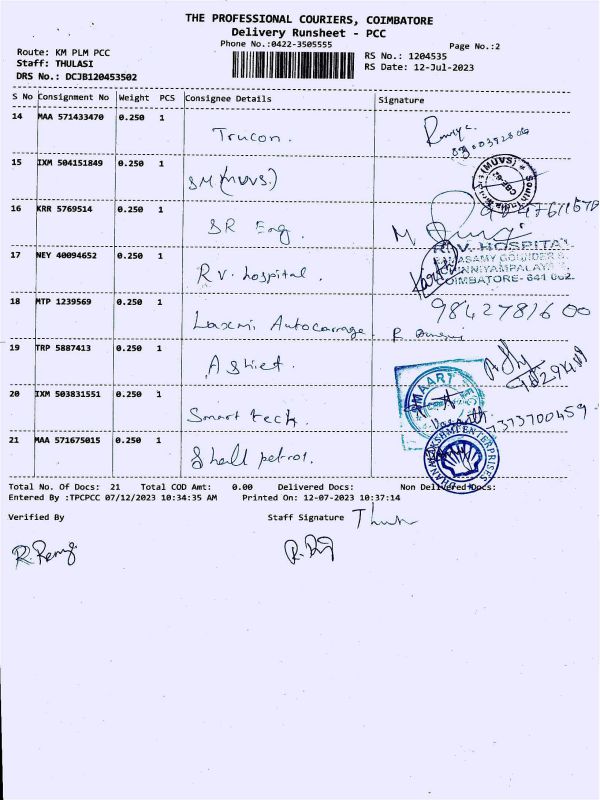 THE PROFESSIONAL COURIERS, COIMBATORE
Delivery Runsheet - PCC
Phone No.:0422-3505555
Page No.:2
Route: KM PLM PCC
Staff: THULASI
DRS No.: DCJB120453502
RS No.: 1204535
RS Date: 12-Jul-2023
S No Consignment No Weight PCS Consignee Details Signature
14 MAA 571433470 0.250 1 Trucon.
15 IXM 504151849 0.250 1 SM (MUVS.)
(MUVS)
South India
CBE-62
16 KRR 5769514 0.250 1 SR Eng.
17 NEY 40094652 0.250 1 R v. hospital.
R.V. HOSPITAL
CHINNIYAMPALAYAM
COIMBATORE- 641 062.
18 MTP 1239569 0.250 1 Laxmi Autocarrage. 9842781600
19 TRP 5887413 0.250 1
20 IXM 503831551 0.250 1 Smart tech. 7373700459
21 MAA 571675015 0.250 1 Shell petrol.
DHANALAKSHMI ENTERPRISES
Total No. Of Docs: 21 Total COD Amt: 0.00 Delivered Docs: Non Delivered Docs:
Entered By :TPCPCC 07/12/2023 10:34:35 AM Printed On: 12-07-2023 10:37:14
Verified By Staff Signature